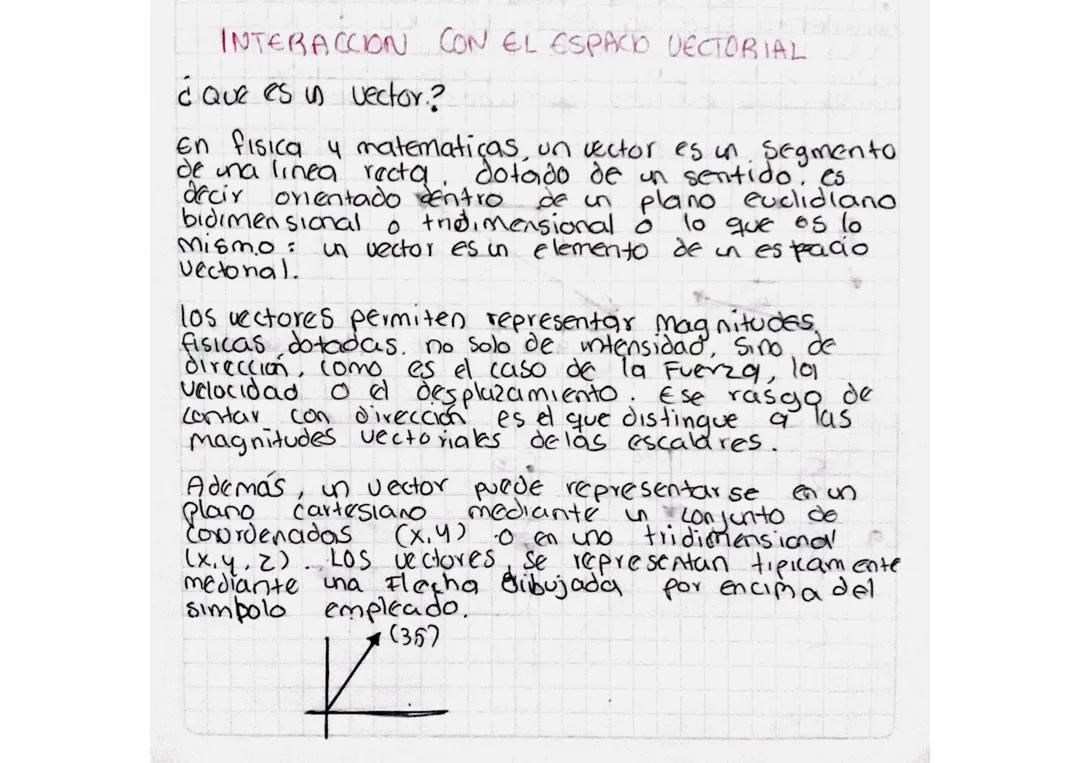 INTERACCION CON EL ESPACIO VECTORIAL
¿Que es un vector?
En fisica y matematicas, un vector es un segmento
de una linea recta, dotado de un sentido, es
decir orientado dentro de un plano euclidiano
bidimensional o tridimensional o lo que es lo
mismo: un vector es un elemento de un espacio
vectorial.
los vectores permiten representar magnitudes
fisicas dotadas. no solo de intensidad, sino de
dirección, como es el caso de la Fuerza, la
velocidad o el desplazamiento. Ese rasgo de
contar con dirección es el que distingue a las
magnitudes vectoriales de las escalares.
Además, un vector puede representarse en un
plano cartesiano mediante un conjunto de
coordenadas (x,y) o en uno tridimensional
(x,y,z). Los vectores, se representan tipicamente
mediante una Flecha dibujada por encima del
simbolo empleado.
(35)